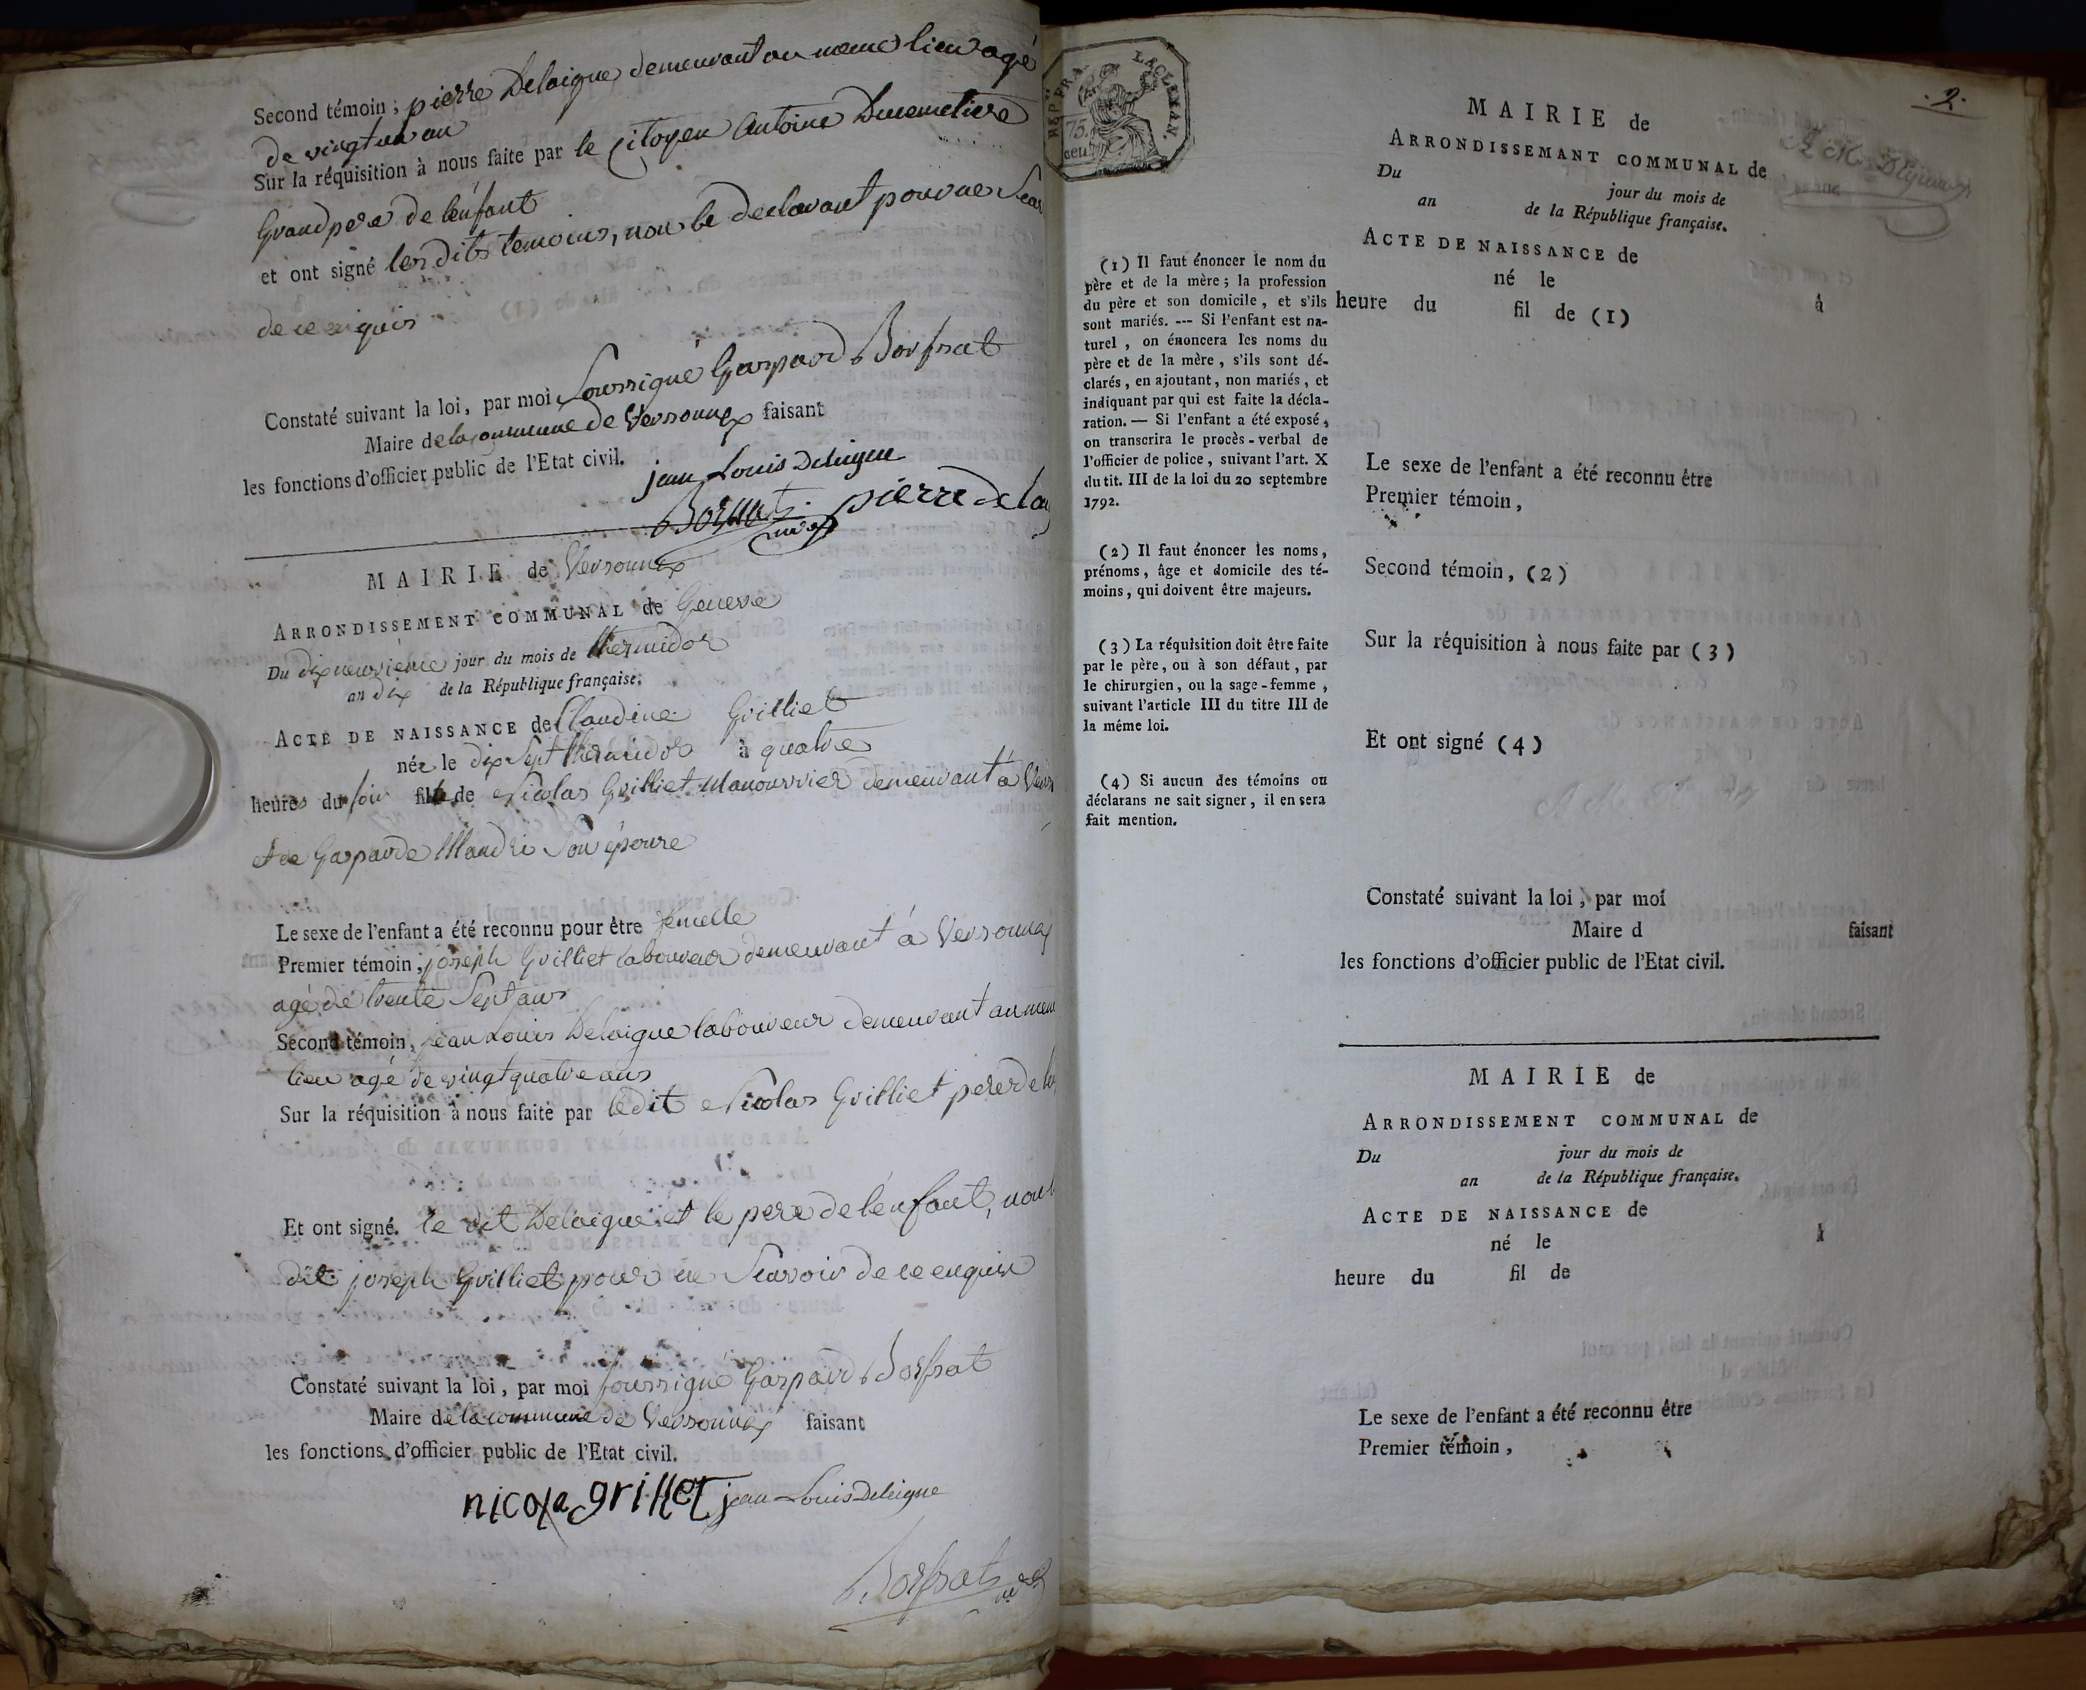 Second témoin ; pierre Delaigue demeurant au meme lieu agé
de vingt un an
Sur la réquisition à nous faite par le Citoyen Antoine Dumetiere
Grandpere de l'enfant
et ont signé lesdits temoins, non le declarant pour ne
de ce enquis
Constaté suivant la loi, par moi soussigné Gaspard Borssat
Maire de la commune de Versonnex faisant
les fonctions d'officier public de l'Etat civil.
jean Louis Delaigue
Borssat pierre dela
MAIRIE de Versonnex
ARRONDISSEMENT COMMUNAL de Geneve
Du dixneuvieme jour du mois de thermidor
an dix de la République française.
ACTE DE NAISSANCE de Claudine Grilliet
née le dix Sept thermidor à quatre
heures du soir fille de Nicolas Grilliet Manouvrier demeurant à Vers
et de Gasparde Mandri son épouse
Le sexe de l'enfant a été reconnu pour être femelle
Premier témoin, joseph Grilliet laboureur demeurant à Versonnex
agé de trente Sept ans
Second témoin, jean Louis Delaigue laboureur demeurant au meme
lieu agé de vingt quatre ans
Sur la réquisition à nous faite par ledit Nicolas Grilliet pere de la
Et ont signé. le dit Delaigue et le pere de l'enfant, non
dit joseph Grilliet pour ne Scavoir de ce enquis
Constaté suivant la loi, par moi soussigné Gaspard Borssat
Maire de la commune de Versonnex faisant
les fonctions d'officier public de l'Etat civil.
nicola grillet jean Louis Delaigue
Borssat
REP. FRA.
75.
cent.
. 2 .
MAIRIE de
ARRONDISSEMANT COMMUNAL de
Du jour du mois de
an de la République française.
ACTE DE NAISSANCE de
né le à
heure du fil de (1)
(1) Il faut énoncer le nom du
père et de la mère ; la profession
du père et son domicile, et s'ils
sont mariés. --- Si l'enfant est na-
turel, on énoncera les noms du
père et de la mère, s'ils sont dé-
clarés, en ajoutant, non mariés, et
indiquant par qui est faite la décla-
ration. — Si l'enfant a été exposé,
on transcrira le procès-verbal de
l'officier de police, suivant l'art. X
du tit. III de la loi du 20 septembre
1792.
Le sexe de l'enfant a été reconnu être
Premier témoin,
(2) Il faut énoncer les noms,
prénoms, âge et domicile des té-
moins, qui doivent être majeurs.
Second témoin, (2)
(3) La réquisition doit être faite
par le père, ou à son défaut, par
le chirurgien, ou la sage-femme,
suivant l'article III du titre III de
la même loi.
Sur la réquisition à nous faite par (3)
Et ont signé (4)
(4) Si aucun des témoins ou
déclarans ne sait signer, il en sera
fait mention.
Constaté suivant la loi, par moi
Maire d faisant
les fonctions d'officier public de l'Etat civil.
MAIRIE de
ARRONDISSEMENT COMMUNAL de
Du jour du mois de
an de la République française.
ACTE DE NAISSANCE de
né le à
heure du fil de
Le sexe de l'enfant a été reconnu être
Premier témoin,